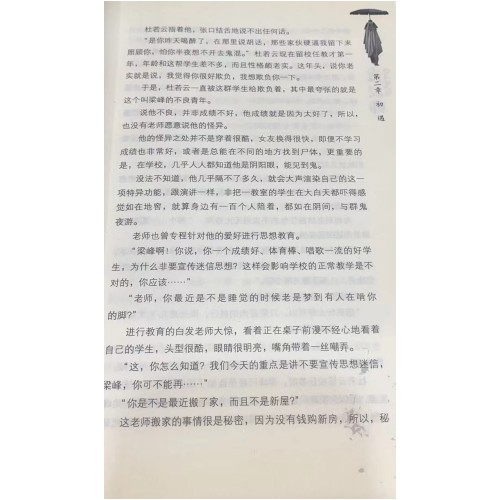 杜若云陪着他，张口结舌地说不出任何话。
“是你昨天喝醉了，在那里说胡话，那些家伙硬逼我留下来
照顾你，怕你半夜想不开去鬼混。”杜若云现在留校任教才第一
年，年龄和这帮学生差不多，而且性格颇老实。这年头，说你老
实就是说，我觉得你很好欺负，我想欺负你一下。
于是，杜若云一直被这群学生给欺负着，其中最夸张的就是
这个叫梁峰的不良青年。
说他不良，并非成绩不好，他成绩就是因为太好了，所以，
也没有老师愿意说他的怪异。
他的怪异之处并不是穿着很酷，女友换得很快，即便不学习
成绩也非常好，或者是总能在不同的地方找到尸体，更重要的
是，在学校，几乎人人都知道他是阴阳眼，能见到鬼。
没法不知道，他几乎隔不了多久，就会大声渲染自己的这一
项特异功能，跟演讲一样，非把一教室的学生在大白天都吓得感
觉如在地窖，就算身边有一百个人陪着，都如在阴间，与群鬼
夜游。
老师也曾专程针对他的爱好进行思想教育。
“梁峰啊！你说，你一个成绩好、体育棒、唱歌一流的好学
生，为什么非要宣传迷信思想？这样会影响学校的正常教学是不
对的，你应该……”
“老师，你最近是不是睡觉的时候老是梦到有人在啃你
的脚？”
进行教育的白发老师大惊，看着正在桌子前漫不轻心地看着
自己的学生，头型很酷，眼睛很明亮，嘴角带着一丝嘲弄。
“这，你怎么知道？我们今天的重点是讲不要宣传思想迷信，
梁峰，你可不能再……”
“你是不是最近搬了家，而且不是新屋？”
这老师搬家的事情很是秘密，因为没有钱购新房，所以，秘
第二章 初遇